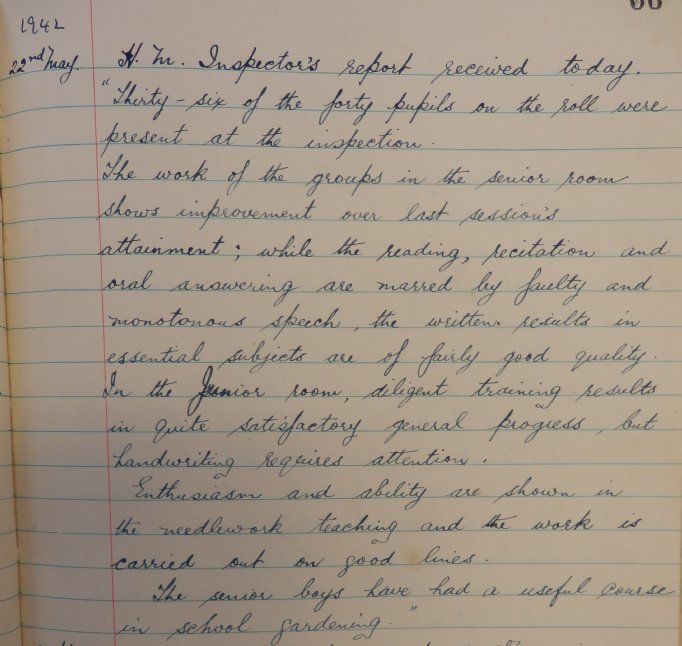 66
1942
22nd May. H. M. Inspector's report received today.
"Thirty-six of the forty pupils on the roll were
present at the inspection.
The work of the groups in the senior room
shows improvement over last session's
attainment; while the reading, recitation and
oral answering are marred by faulty and
monotonous speech, the written results in
essential subjects are of fairly good quality.
In the Junior room, diligent training results
in quite satisfactory general progress, but
handwriting requires attention.
Enthusiasm and ability are shown in
the needlework teaching and the work is
carried out on good lines.
The senior boys have had a useful course
in school gardening."